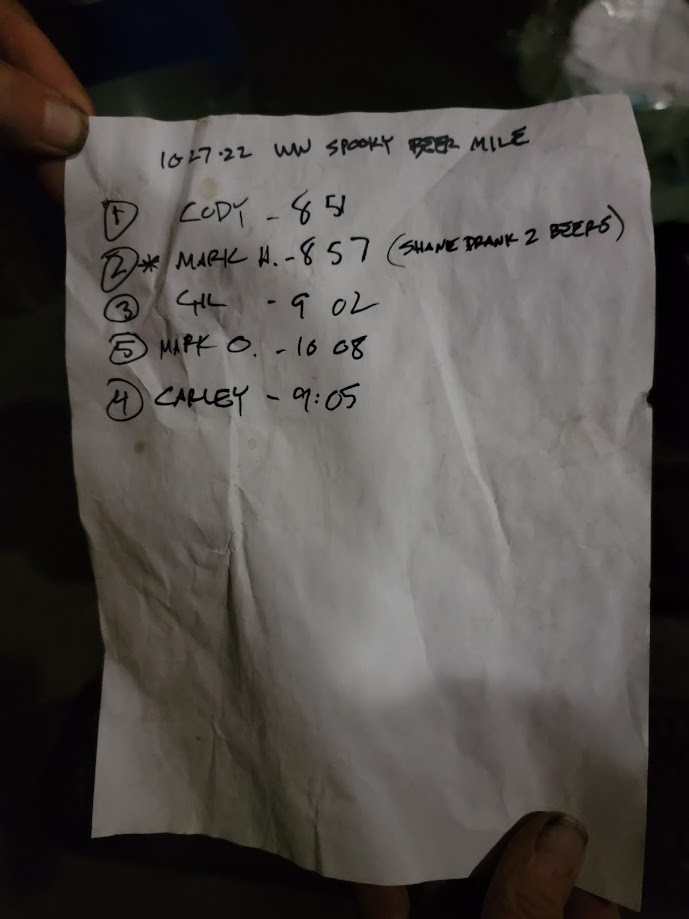 10·27·22 WW SPOOKY BEER MILE
① CODY - 8 51
②* MARK H. - 8 57 (SHANE DRANK 2 BEERS)
③ GIL - 9 02
⑤ MARK O. - 10 08
④ CARLEY - 9:05